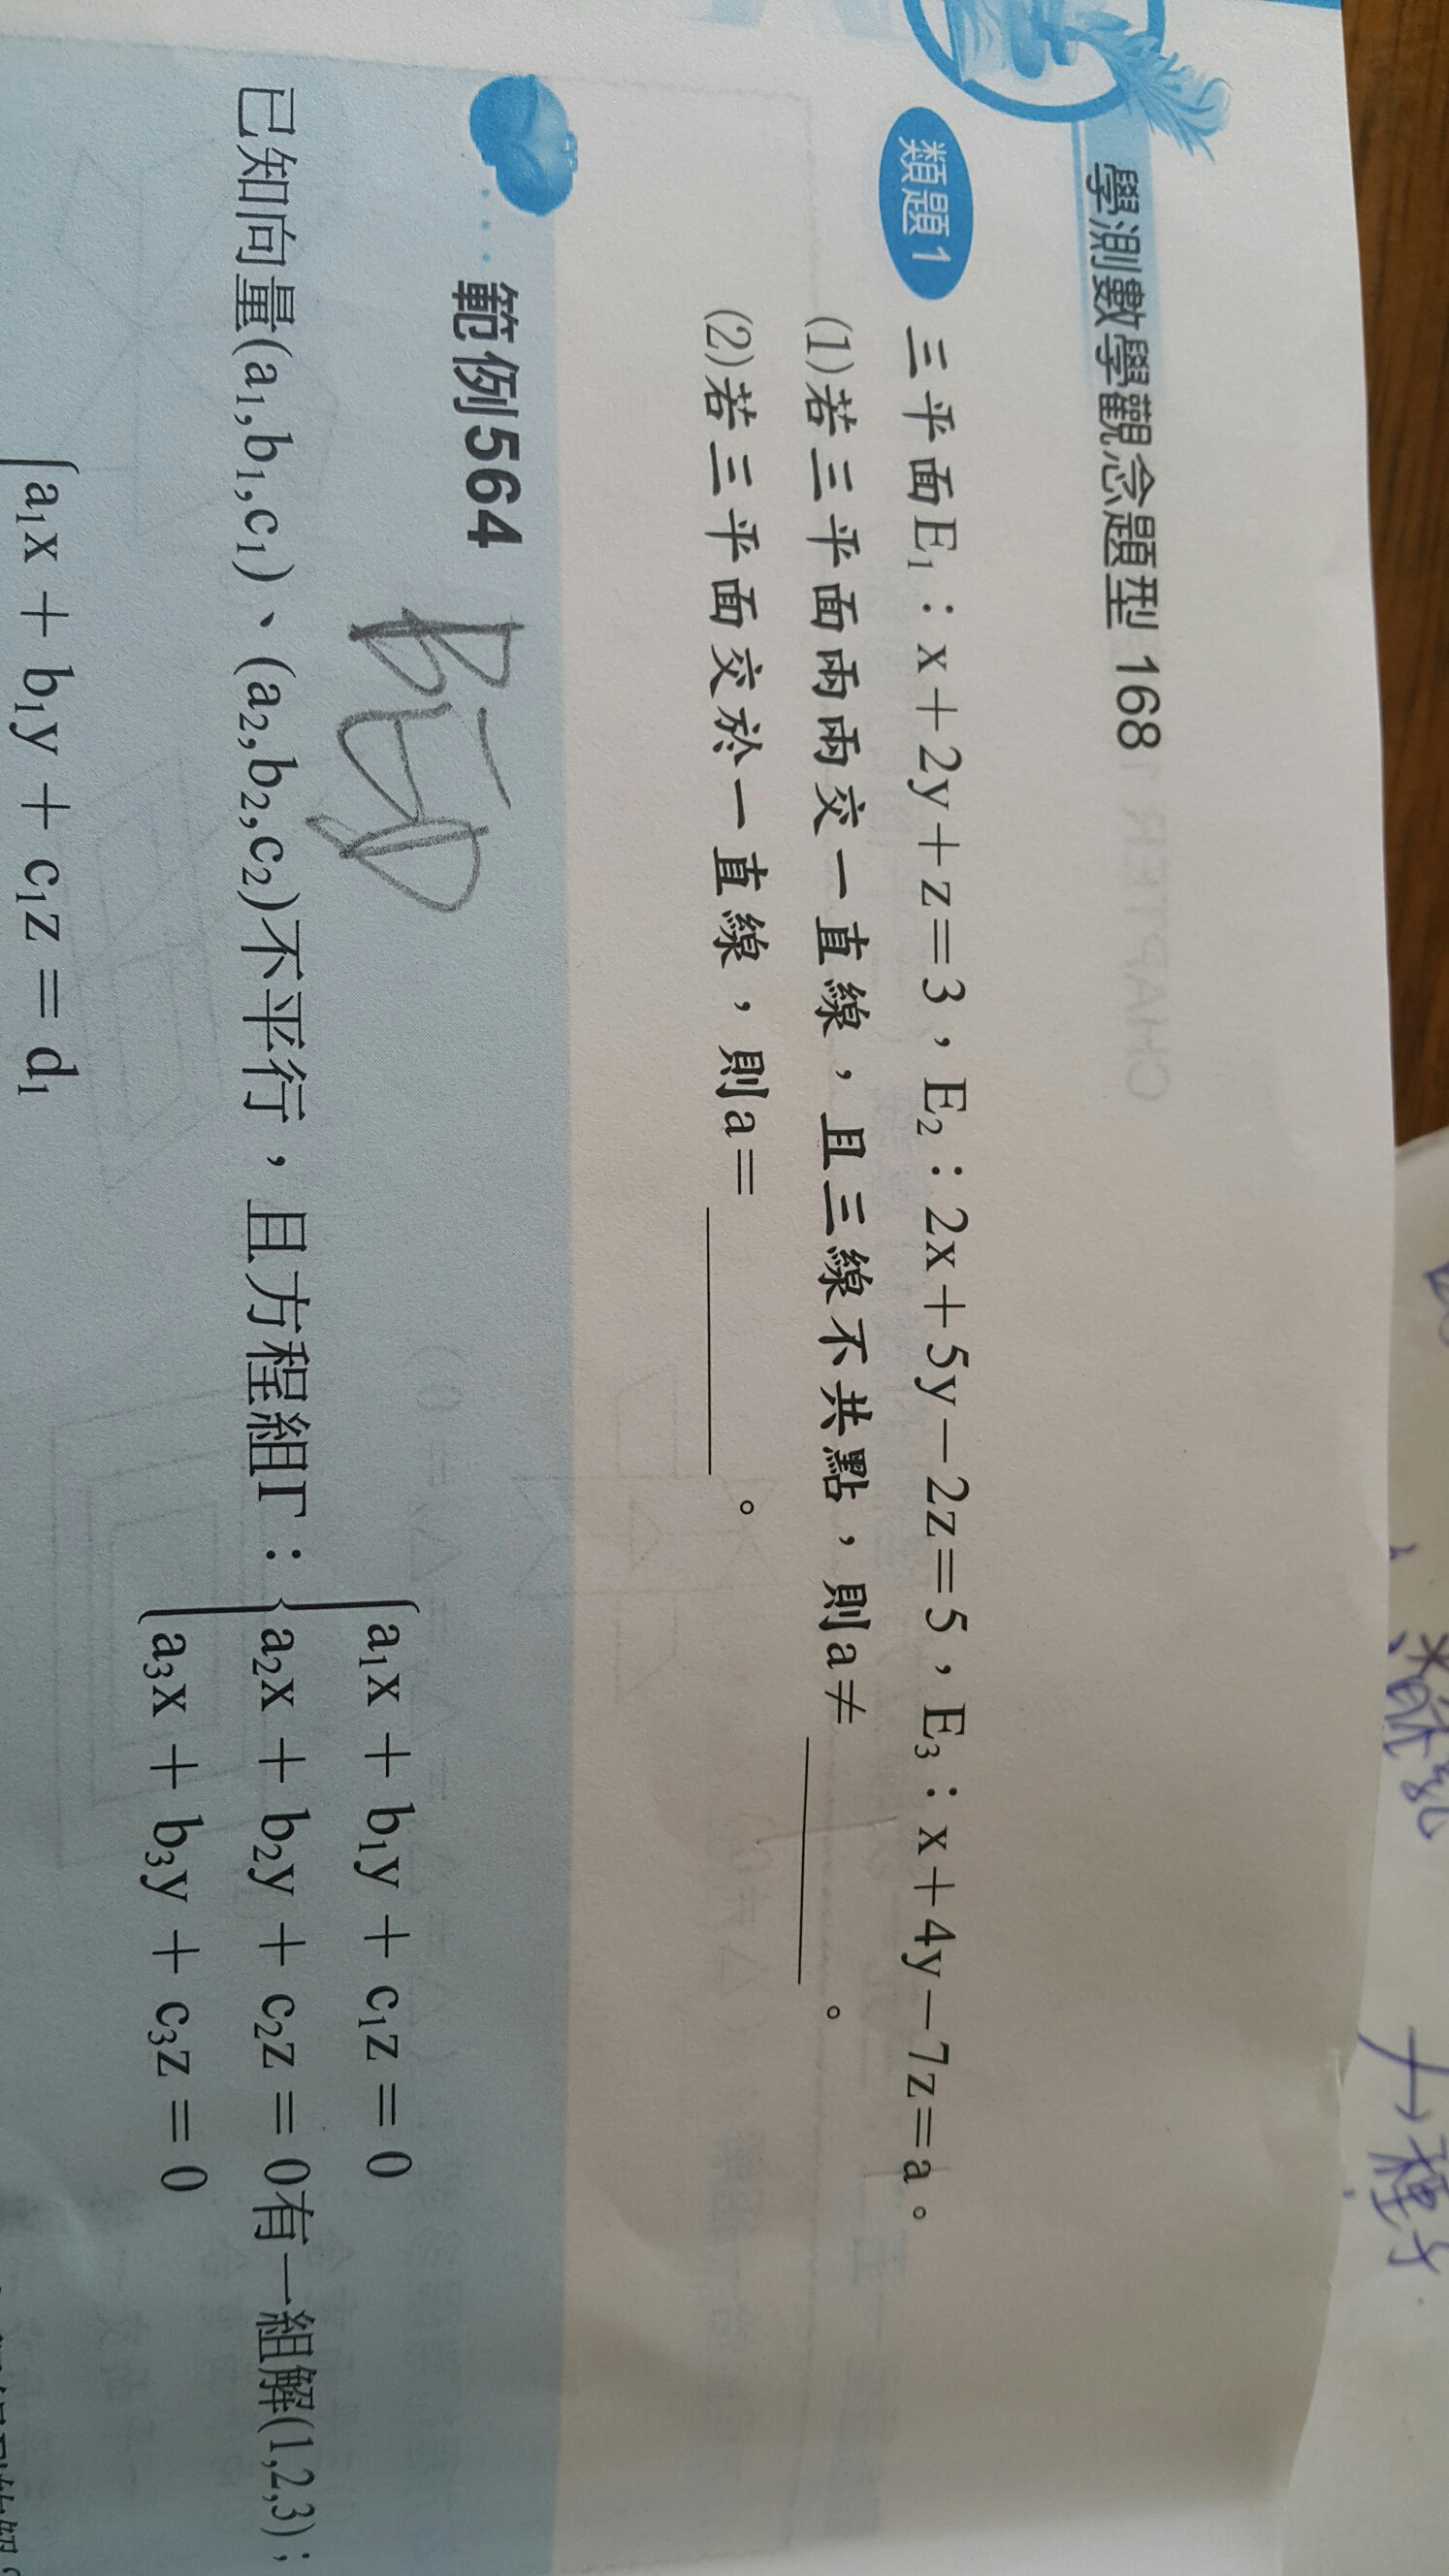 學測數學觀念題型 168
類題1 三平面E₁：x＋2y＋z＝3，E₂：2x＋5y－2z＝5，E₃：x＋4y－7z＝a。
(1)若三平面兩兩交一直線，且三線不共點，則a≠＿＿＿＿。
(2)若三平面交於一直線，則a＝＿＿＿＿。
範例564
已知向量(a₁,b₁,c₁)、(a₂,b₂,c₂)不平行，且方程組Γ：{a₁x + b₁y + c₁z = 0
a₂x + b₂y + c₂z = 0有一組解(1,2,3)；
a₃x + b₃y + c₃z = 0
a₁x + b₁y + c₁z = d₁